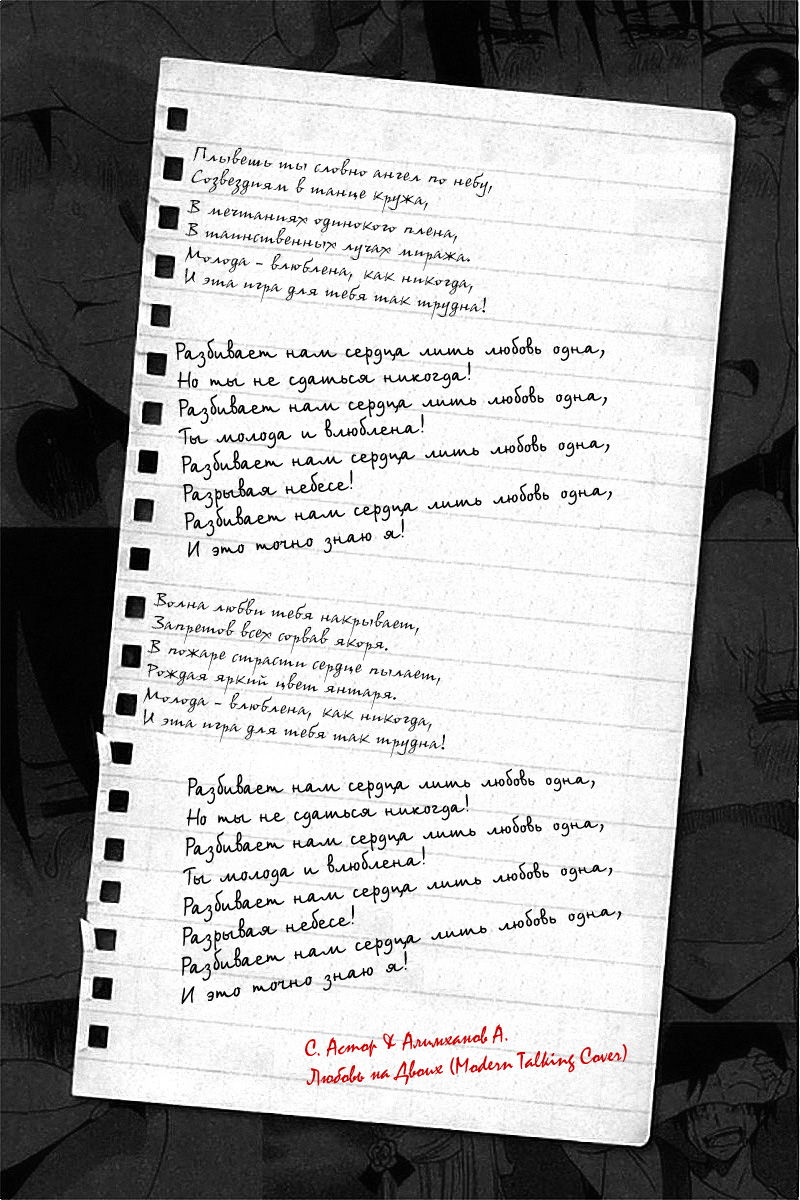 Плывешь ты словно ангел по небу,
Созвездиям в танце кружа,
В мечтаниях одинокого плена,
В таинственных лучах миража.
Молода - влюблена, как никогда,
И эта игра для тебя так трудна!
Разбивает нам сердца лишь любовь одна,
Но ты не сдаться никогда!
Разбивает нам сердца лишь любовь одна,
Ты молода и влюблена!
Разбивает нам сердца лишь любовь одна,
Разрывая небесе!
Разбивает нам сердца лишь любовь одна,
И это точно знаю я!
Волна любви тебя накрывает,
Запретов всех сорвав якоря.
В пожаре страсти сердце пылает,
Рождая яркий цвет янтаря.
Молода - влюблена, как никогда,
И эта игра для тебя так трудна!
Разбивает нам сердца лишь любовь одна,
Но ты не сдаться никогда!
Разбивает нам сердца лишь любовь одна,
Ты молода и влюблена!
Разбивает нам сердца лишь любовь одна,
Разрывая небесе!
Разбивает нам сердца лишь любовь одна,
И это точно знаю я!
С. Астор & Алимханов А.
Любовь на Двоих (Modern Talking Cover)